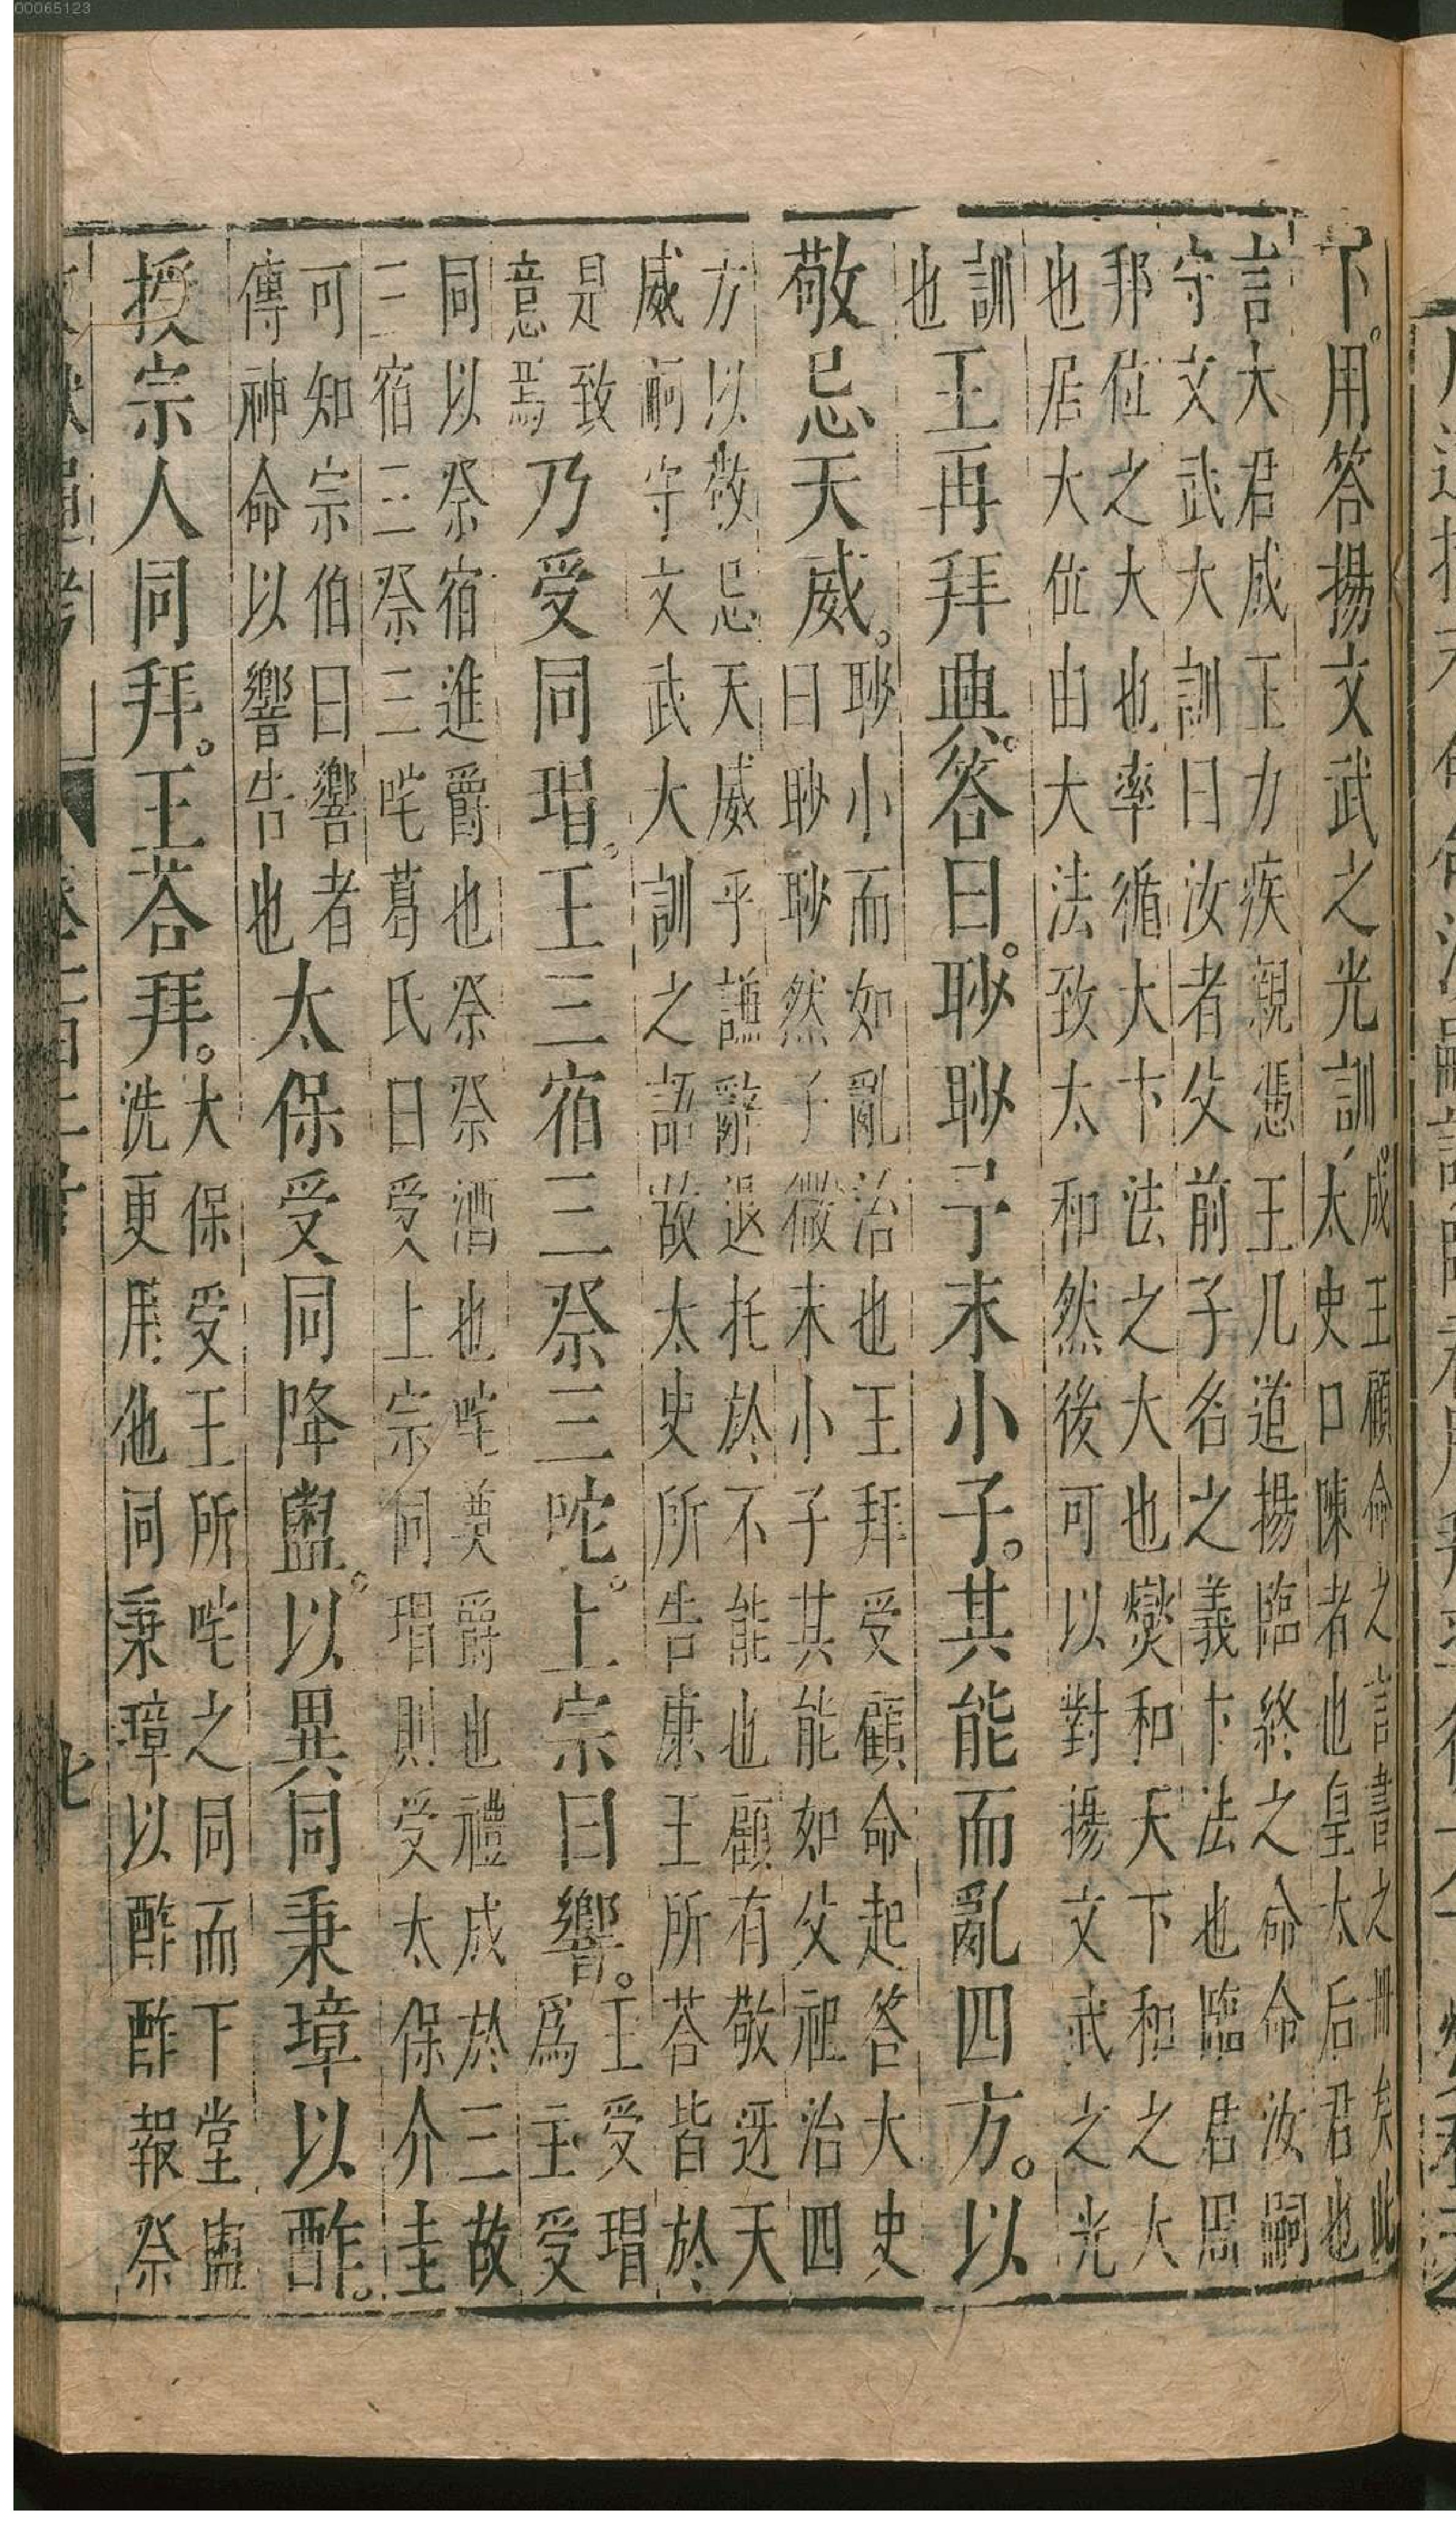 00065123
下。用答揚文武之光訓。成王顧命之言書之冊矣此
太史口陳者也皇太后君也
言大君成王力疾親憑王几道揚臨終之命命汝嗣
守文武大訓曰汝者父前子名之義卞法也臨君周
邦位之大也率循大卞法之大也燮和天下和之大
也居大位由大法致太和然後可以對揚文武之光
訓
也
王再拜興。答曰。眇眇予末小子。其能而亂四方。以
敬忌天威。眇小而如亂治也王拜受顧命起答大史
曰眇眇然予微末小子其能如父祖治四
方以敬忌天威乎謙辭退托於不能也顧有敬迓天
威嗣守文武大訓之語故太史所告康王所荅皆於
是致
意焉
乃受同瑁。王三宿三祭三咤。上宗曰饗。王受瑁
爲主受
同以祭宿進爵也祭祭酒也咤奠爵也禮成於三故
三宿三祭三咤葛氏曰受上宗同瑁則受太保介圭
可知宗伯曰饗者
傳神命以饗告也
太保受同降盥。以異同秉璋以酢。
授宗人同拜。王荅拜。大保受王所咤之同而下堂盥
洗更用他同秉璋以酢酢報祭
七